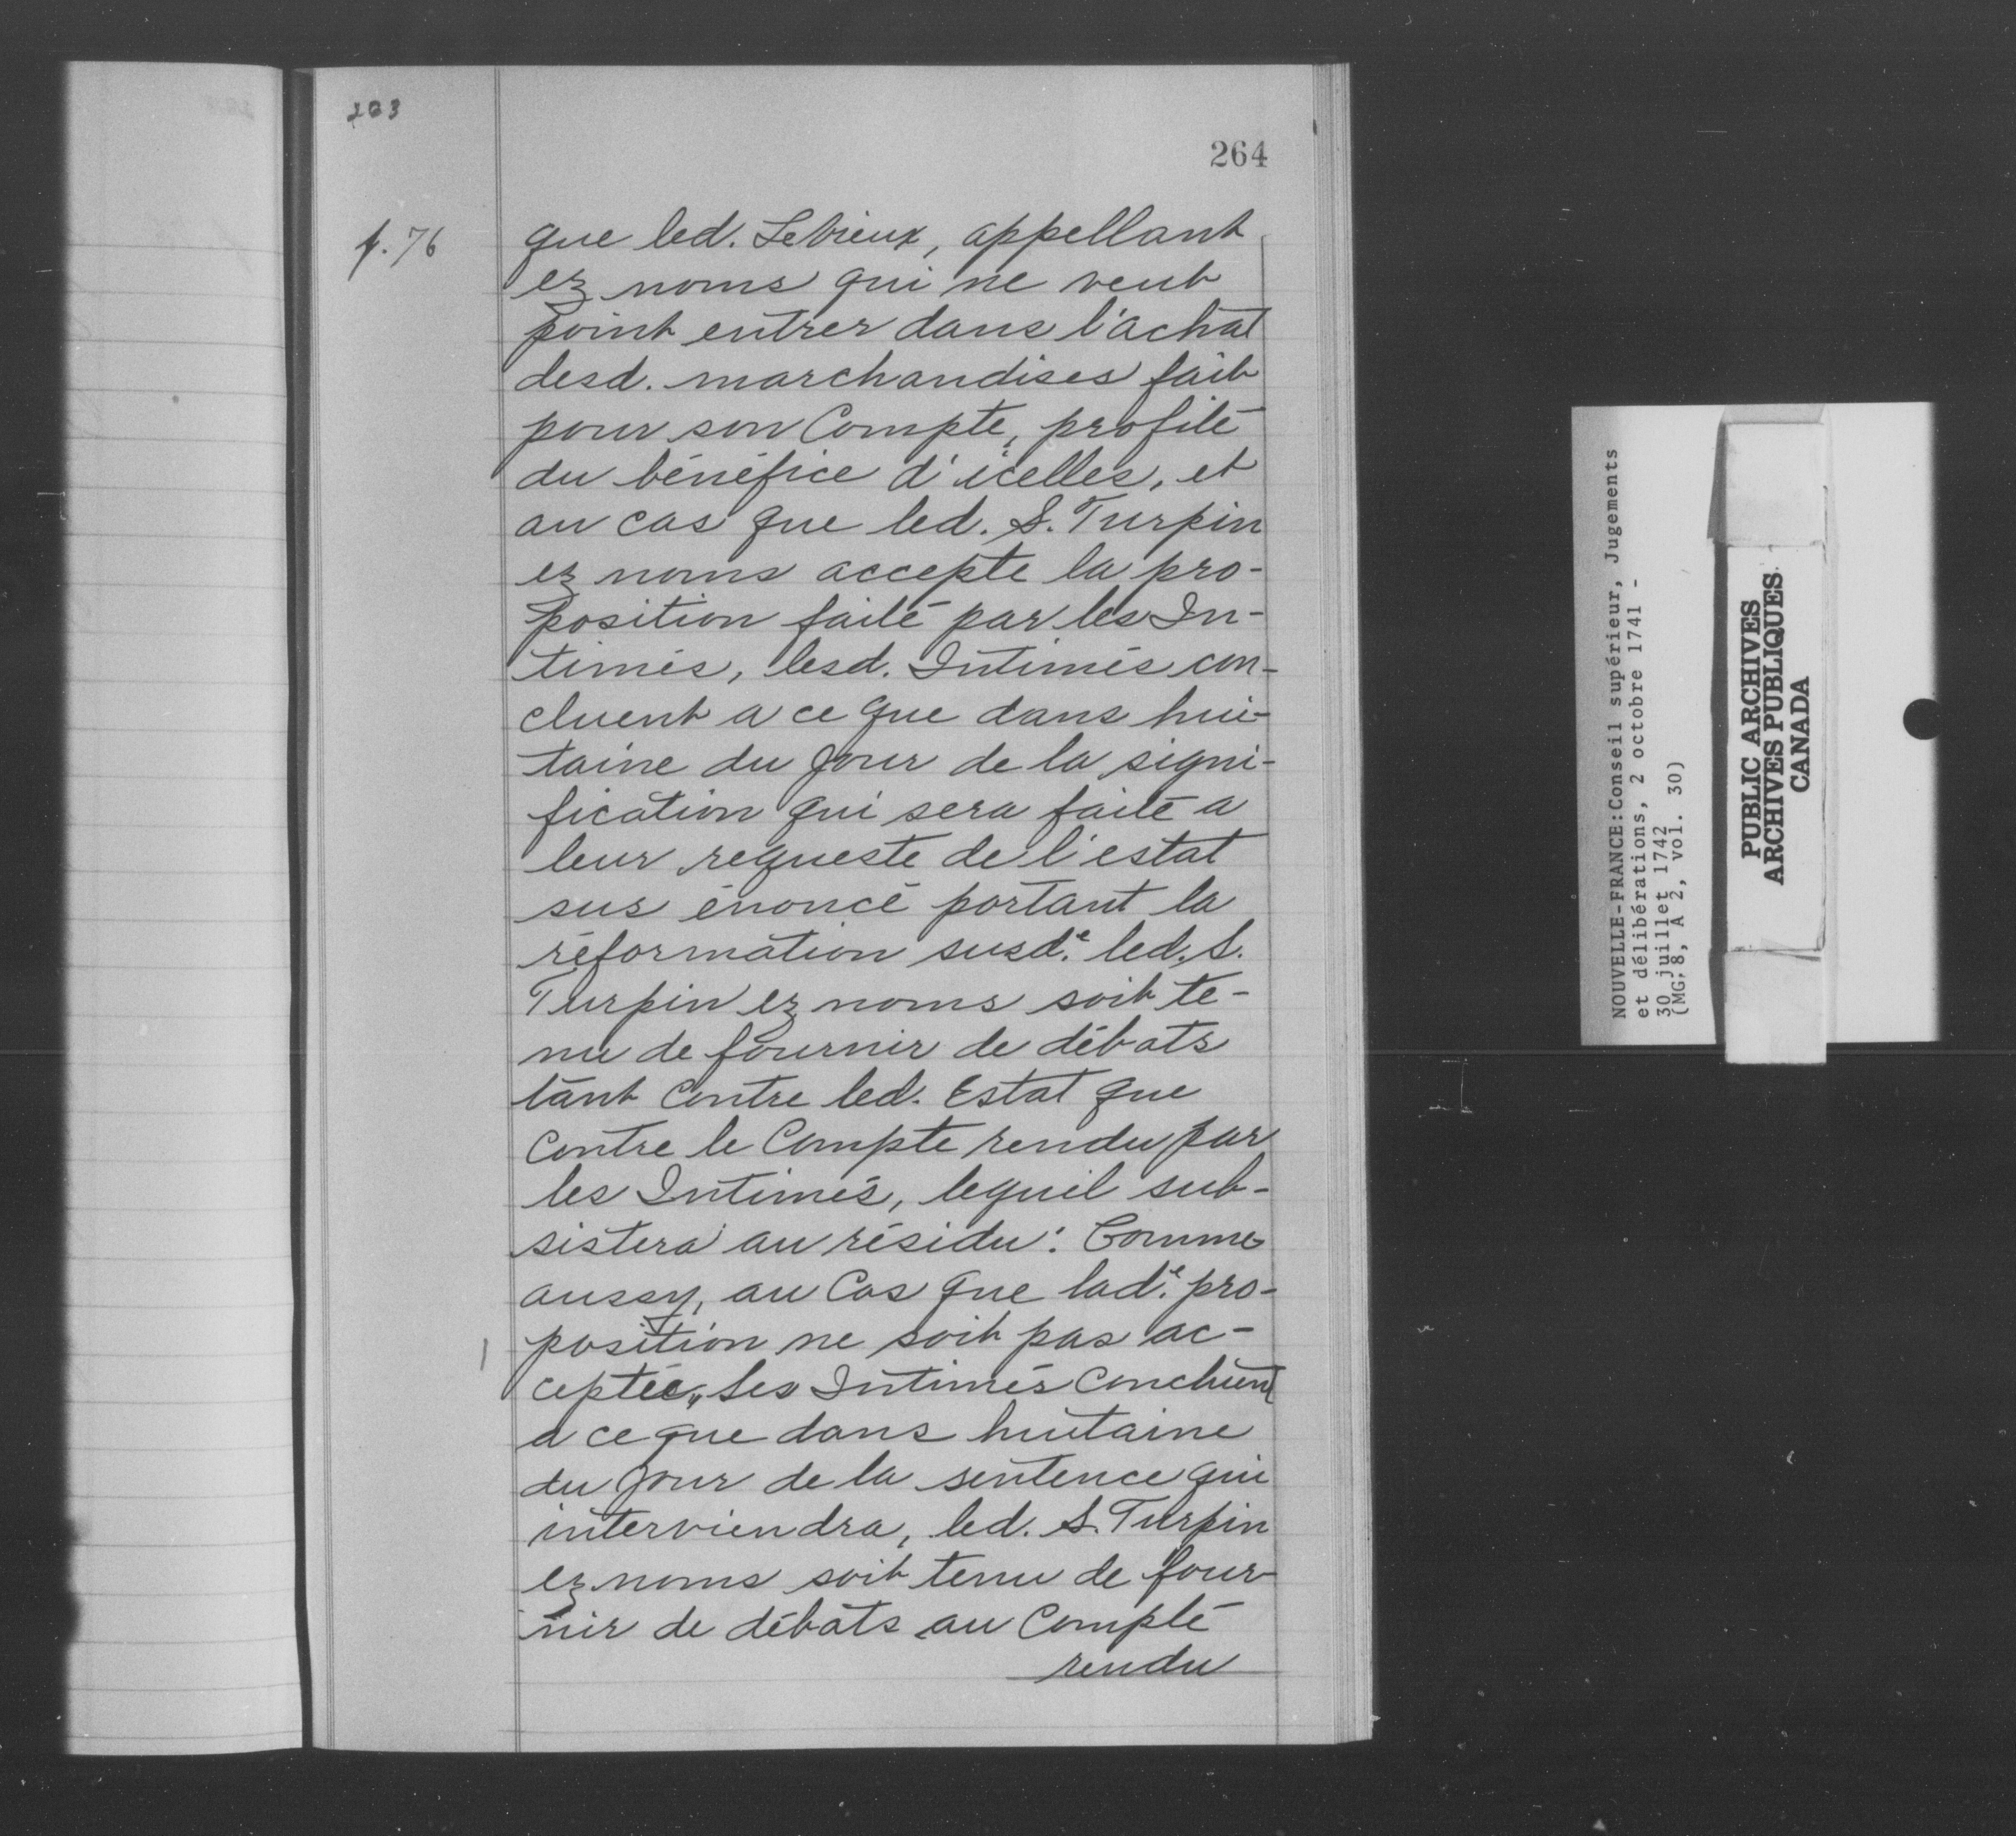 203
264
f. 76
que led. Levieux, appellant
ez noms qui ne veut
point entrer dans l'achat
desd. marchandises fait
pour son Compte, profite
du bénéfice d'icelles, et
au cas que led. S. Turpin
ez noms accepte la pro-
position faite par les In-
timés, lesd. Intimés con-
cluent a ce que dans hui-
taine du Jour de la signi-
fication qui sera faite a
leur requeste de l'estat
sus énoncé portant la
réformation susd.e led. S.
Turpin ez noms soit te-
nu de fournir de débats
tant Contre led. Estat que
Contre le Compte rendu par
les Intimés, lequel sub-
sistera au résidu: Comme
aussy, au Cas que lad.e pro-
position ne soit pas ac-
ceptée, Les Intimés Concluent
a ce que dans huitaine
du Jour de la sentence qui
interviendra, led. S. Turpin
ez noms soit tenu de four-
nir de débats au Compte
rendu
NOUVELLE-FRANCE:Conseil supérieur, Jugements
et délibérations, 2 octobre 1741 -
30 juillet 1742
(MG 8, A 2, vol. 30)
PUBLIC ARCHIVES
ARCHIVES PUBLIQUES
CANADA